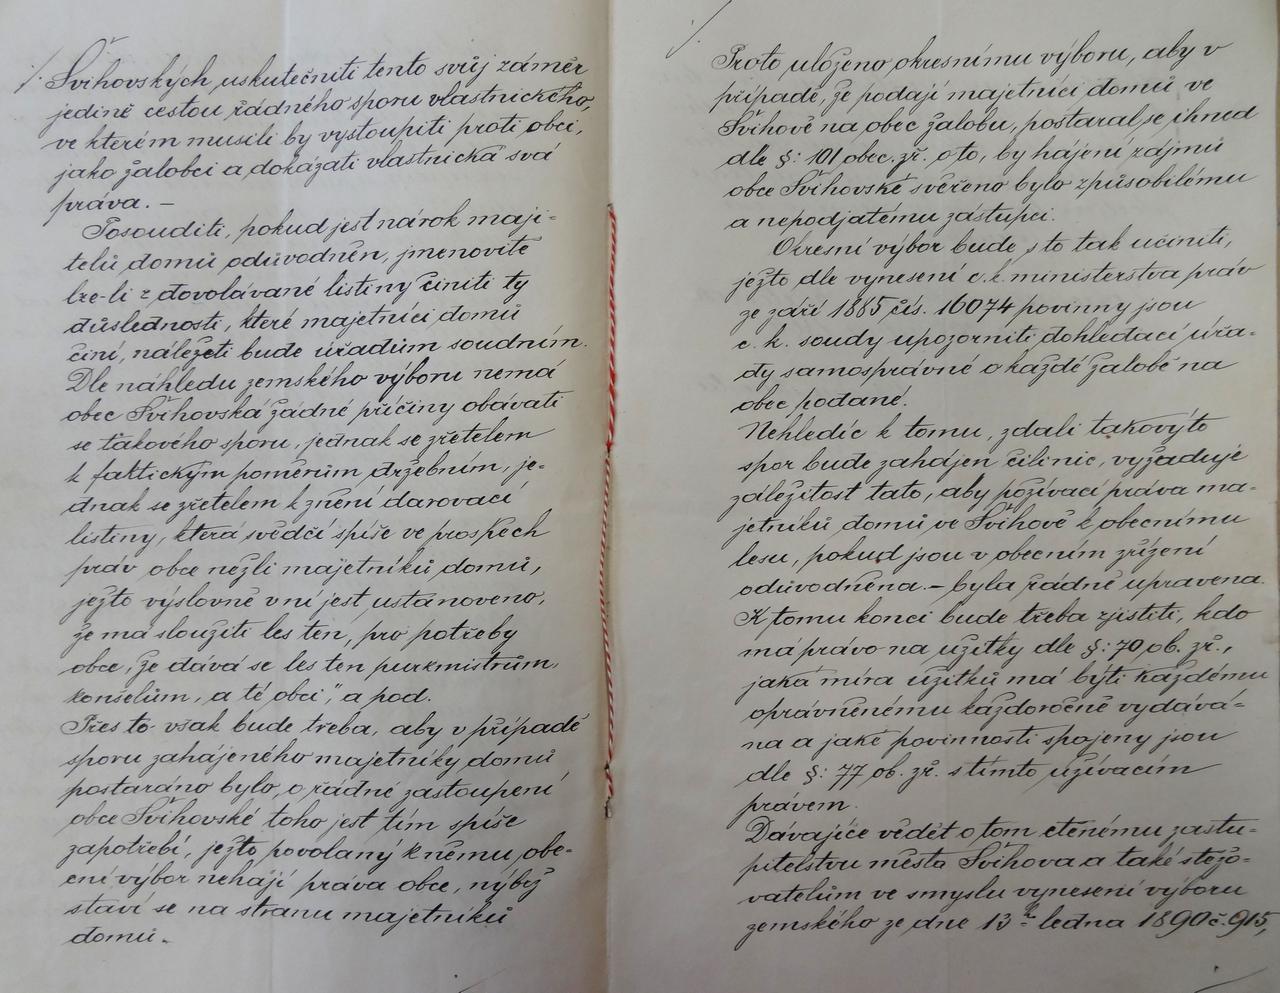 Švihovských, uskutečniti tento svůj záměr
jedině cestou řádného sporu vlastnického,
ve kterém musili by vystoupiti proti obci,
jako žalobci a dokázati vlastnická svá
práva. –
Posouditi, pokud jest nárok maji-
telů domů odůvodněn, jmenovitě
lze-li z dovolávané listiny činiti ty
důslednosti, které majetníci domů
činí, náležeti bude úřadům soudním.
Dle náhledu zemského výboru nemá
obec Švihovská žádné příčiny obávati
se takového sporu, jednak se zřetelem
k faktickým poměrům držebním, je-
dnak se zřetelem k znění darovací
listiny, která svědčí spíše ve prospěch
práv obce nežli majetníků domů,
ježto výslovně v ní jest ustanoveno,
že má sloužiti les ten „pro potřeby
obce, že dává se les ten purkmistrům,
konšelům, a té obci," a pod.
Přes to však bude třeba, aby v případě
sporu zahájeného majetníky domů
postaráno bylo o řádné zastoupení
obce Švihovské toho jest tím spíše
zapotřebí, ježto povolaný k němu obe-
cní výbor nehájí práva obce, nýbrž
staví se na stranu majetníků
domů.
Proto uloženo okresnímu výboru, aby v
případě, že podají majetníci domů ve
Švihově na obec žalobu, postaral se ihned
dle §: 101 obec. zř. o to, by hájení zájmů
obce Švihovské svěřeno bylo způsobilému
a nepodjatému zástupci.
Okresní výbor bude s to tak učiniti,
ježto dle vynesení c. k. ministerstva práv
ze září 1885 čís. 16074 povinny jsou
c. k. soudy upozorniti dohledací úřa-
dy samosprávné o každé žalobě na
obec podané.
Nehledíc k tomu, zdali takovýto
spor bude zahájen čili nic, vyžaduje
záležitost tato, aby požívací práva ma-
jetníků domů ve Švihově k obecnímu
lesu, pokud jsou v obecním zřízení
odůvodněna. – byla řádně upravena.
K tomu konci bude třeba zjistiti, kdo
má právo na užitky dle §: 70 ob. zř.,
jaká míra užitků má býti každému
oprávněnému každoročně vydává-
na a jaké povinnosti spojeny jsou
dle §: 77 ob. zř. s tímto užívacím
právem.
Dávajíce věděti o tom ctěnému zastu-
pitelstvu města Švihova a také stěžo-
vatelům ve smyslu vynesení výboru
zemského ze dne 13ho ledna 1890 č. 915,